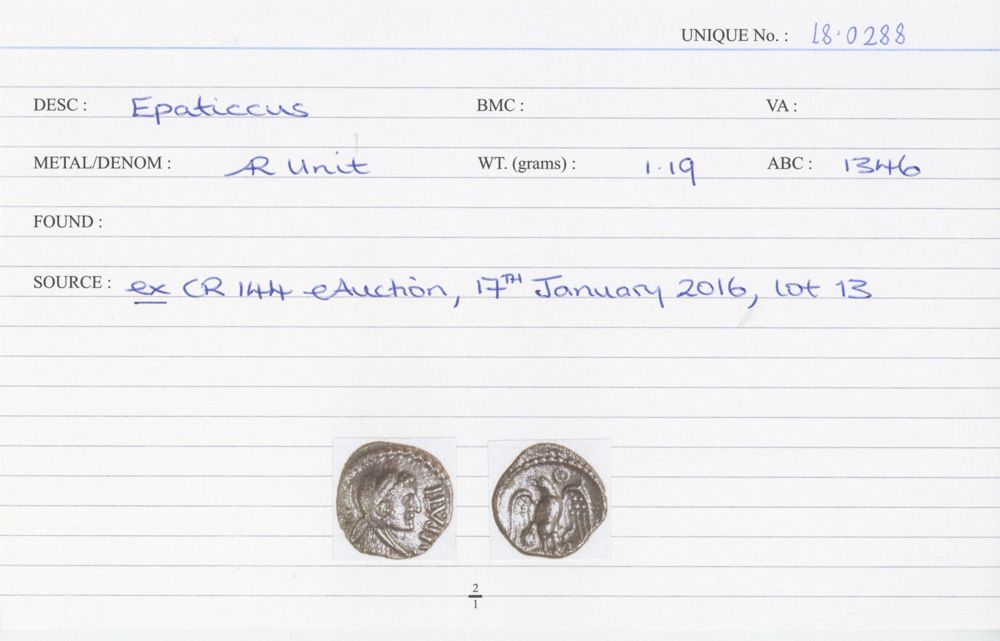 UNIQUE No. : 18·0288
DESC : Epaticcus BMC : VA :
METAL/DENOM : AR Unit WT. (grams) : 1·19 ABC : 1346
FOUND :
SOURCE : ex CR 144 eAuction, 17TH January 2016, lot 13
2
1